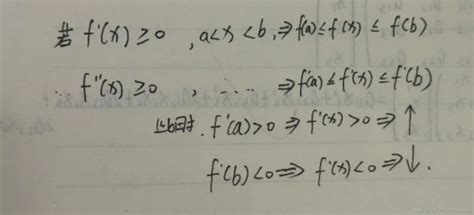 若 f'(x) ≥ 0 , a<x<b, ⇒ f(a) ≤ f(x) ≤ f(b)
... f''(x) ≥ 0 , ... ⇒ f'(a) ≤ f'(x) ≤ f'(b)
此时. f'(a)>0 ⇒ f'(x)>0 ⇒ ↑
f'(b)<0 ⇒ f'(x)<0 ⇒ ↓.